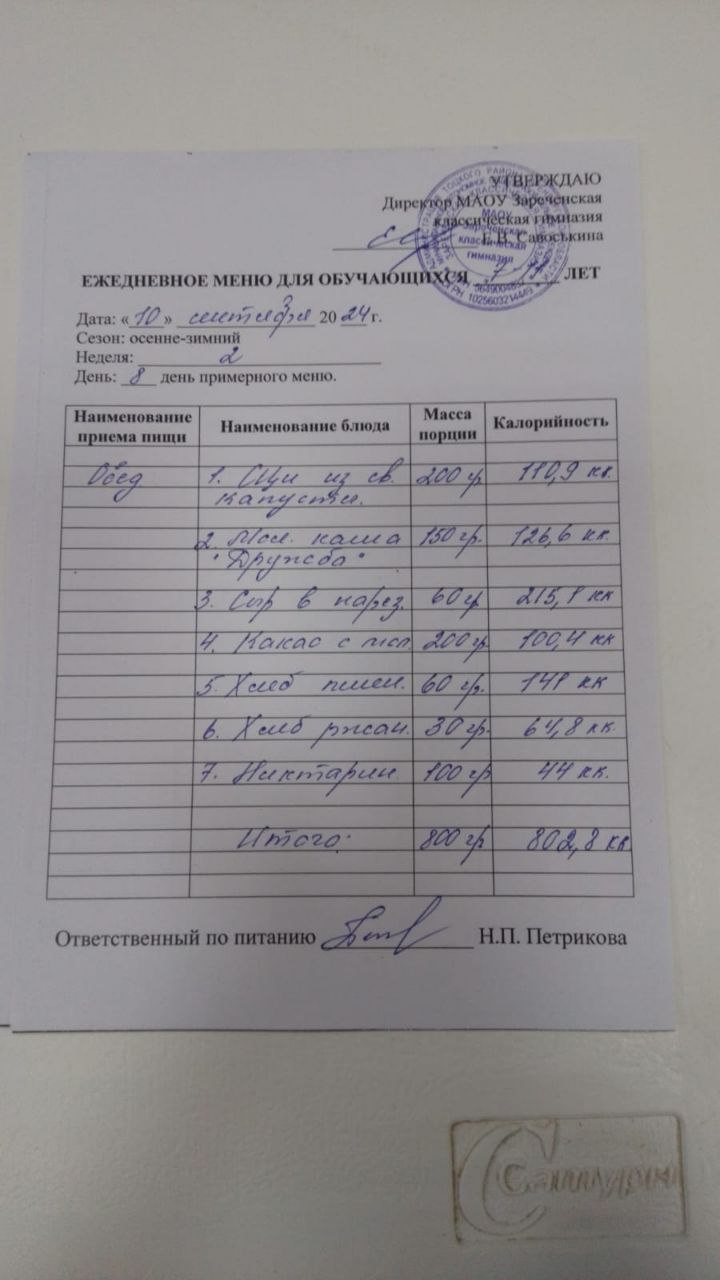 УТВЕРЖДАЮ
Директор МАОУ Зареченская
классическая гимназия
Е.В. Савоськина
МАОУ
Зареченская
классическая
гимназия
ОГРН 1025603214449
ЕЖЕДНЕВНОЕ МЕНЮ ДЛЯ ОБУЧАЮЩИХСЯ 7-11 ЛЕТ
Дата: «10» сентября 2024 г.
Сезон: осенне-зимний
Неделя: 2
День: 8 день примерного меню.
Наименование приема пищи Наименование блюда Масса порции Калорийность
Обед 1. Щи из св. 200 гр 110,9 кк.
капусты.
2. Мол. каша 150 гр. 126,6 кк.
"Дружба"
3. Сыр в нарез. 60 гр 215,1 кк
4. Какао с мол. 200 гр. 100,4 кк
5. Хлеб пшен. 60 гр. 141 кк
6. Хлеб ржан. 30 гр. 64,8 кк.
7. Никтарин 100 гр 44 кк.
Итого: 800 гр 802,8 кк
Ответственный по питанию Н.П. Петрикова